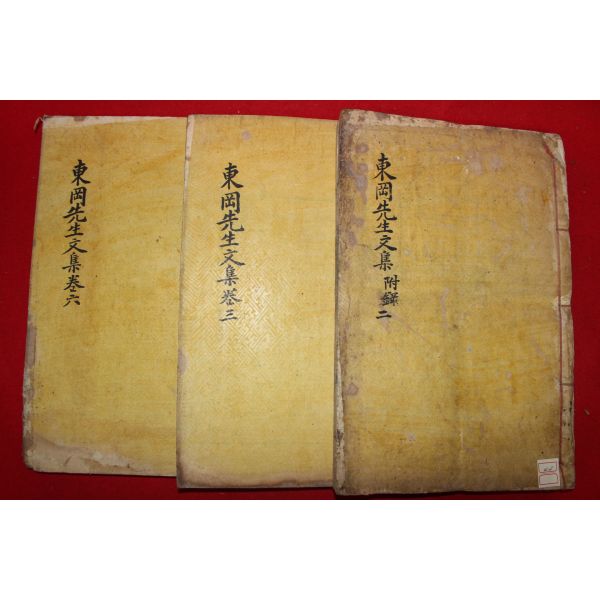 東岡先生文集 附錄 二
東岡先生文集 卷三
東岡先生文集卷六